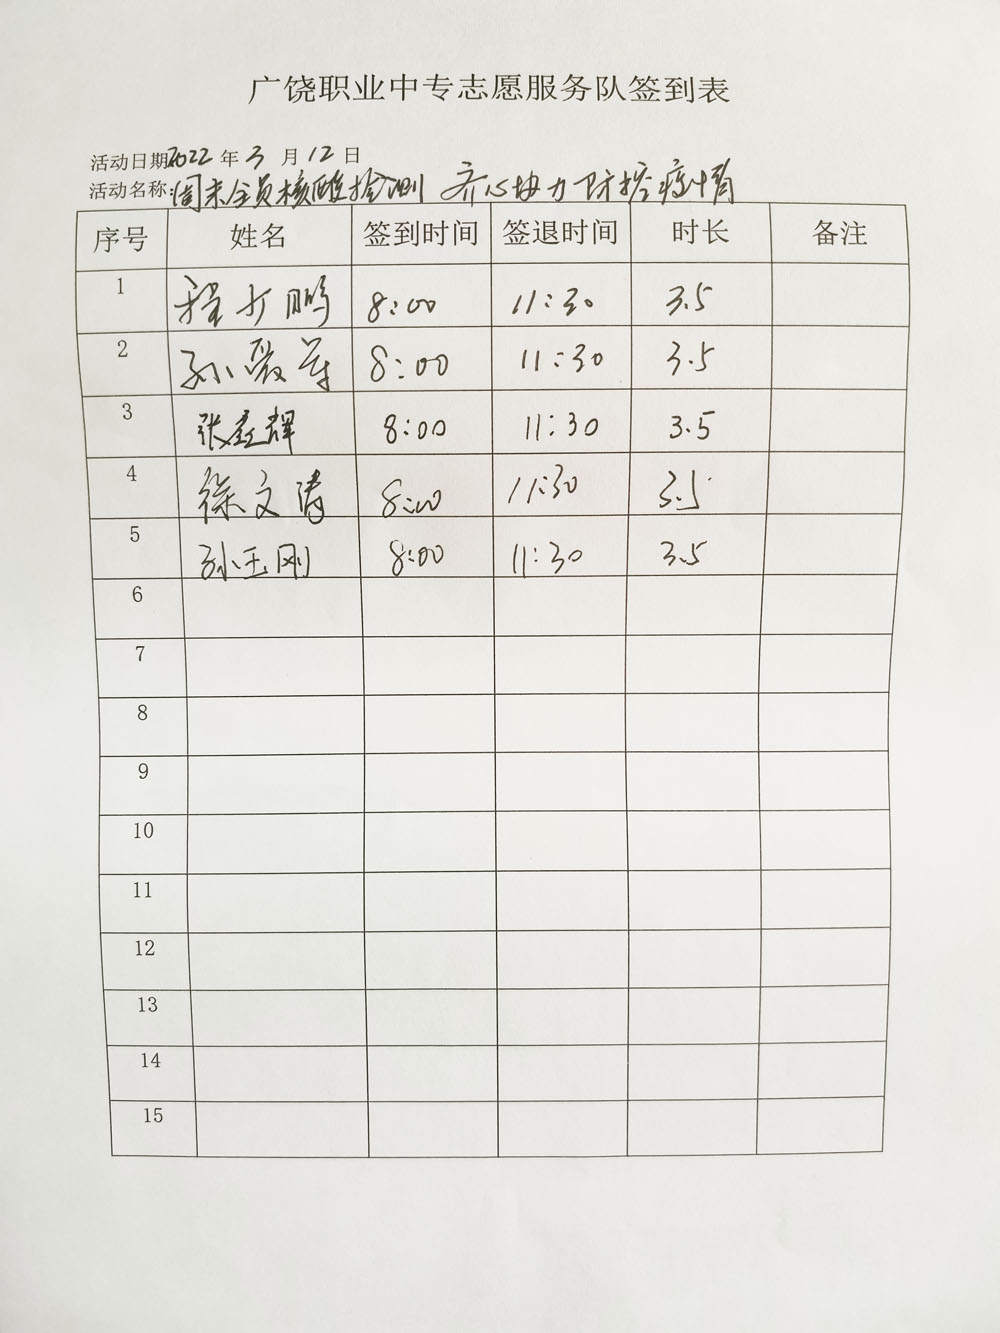 广饶职业中专志愿服务队签到表
活动日期2022年3月12日
活动名称:周末全员核酸检测 齐心协力防控疫情
序号 姓名 签到时间 签退时间 时长 备注
1 程 鹏 8:00 11:30 3.5
2 孙爱 8:00 11:30 3.5
3 张 辉 8:00 11:30 3.5
4 徐文涛 8:00 11:30 3.5
5 孙玉刚 8:00 11:30 3.5
6
7
8
9
10
11
12
13
14
15